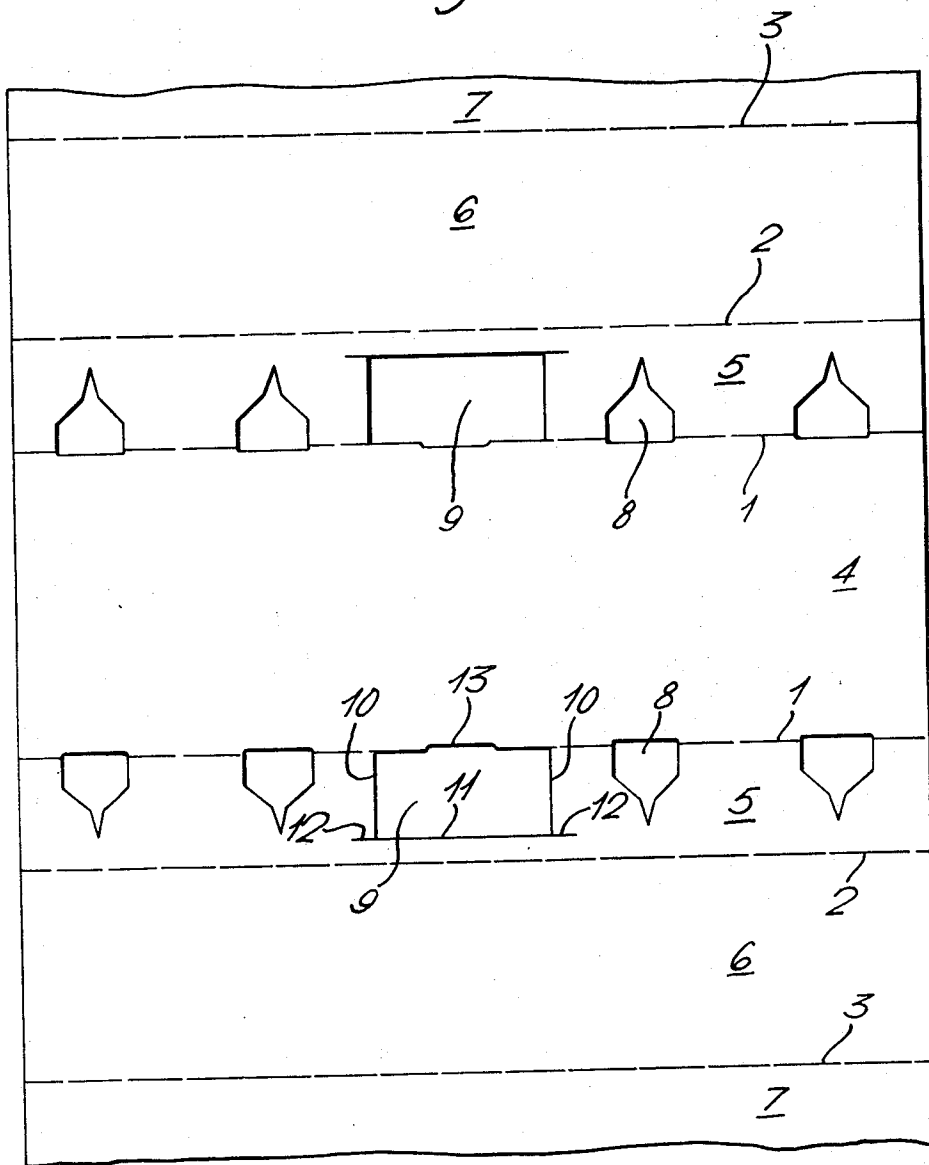 3
7
6
2
5
9
8
1
4
10
13
10
8
1
12
11
12
5
9
2
6
3
7